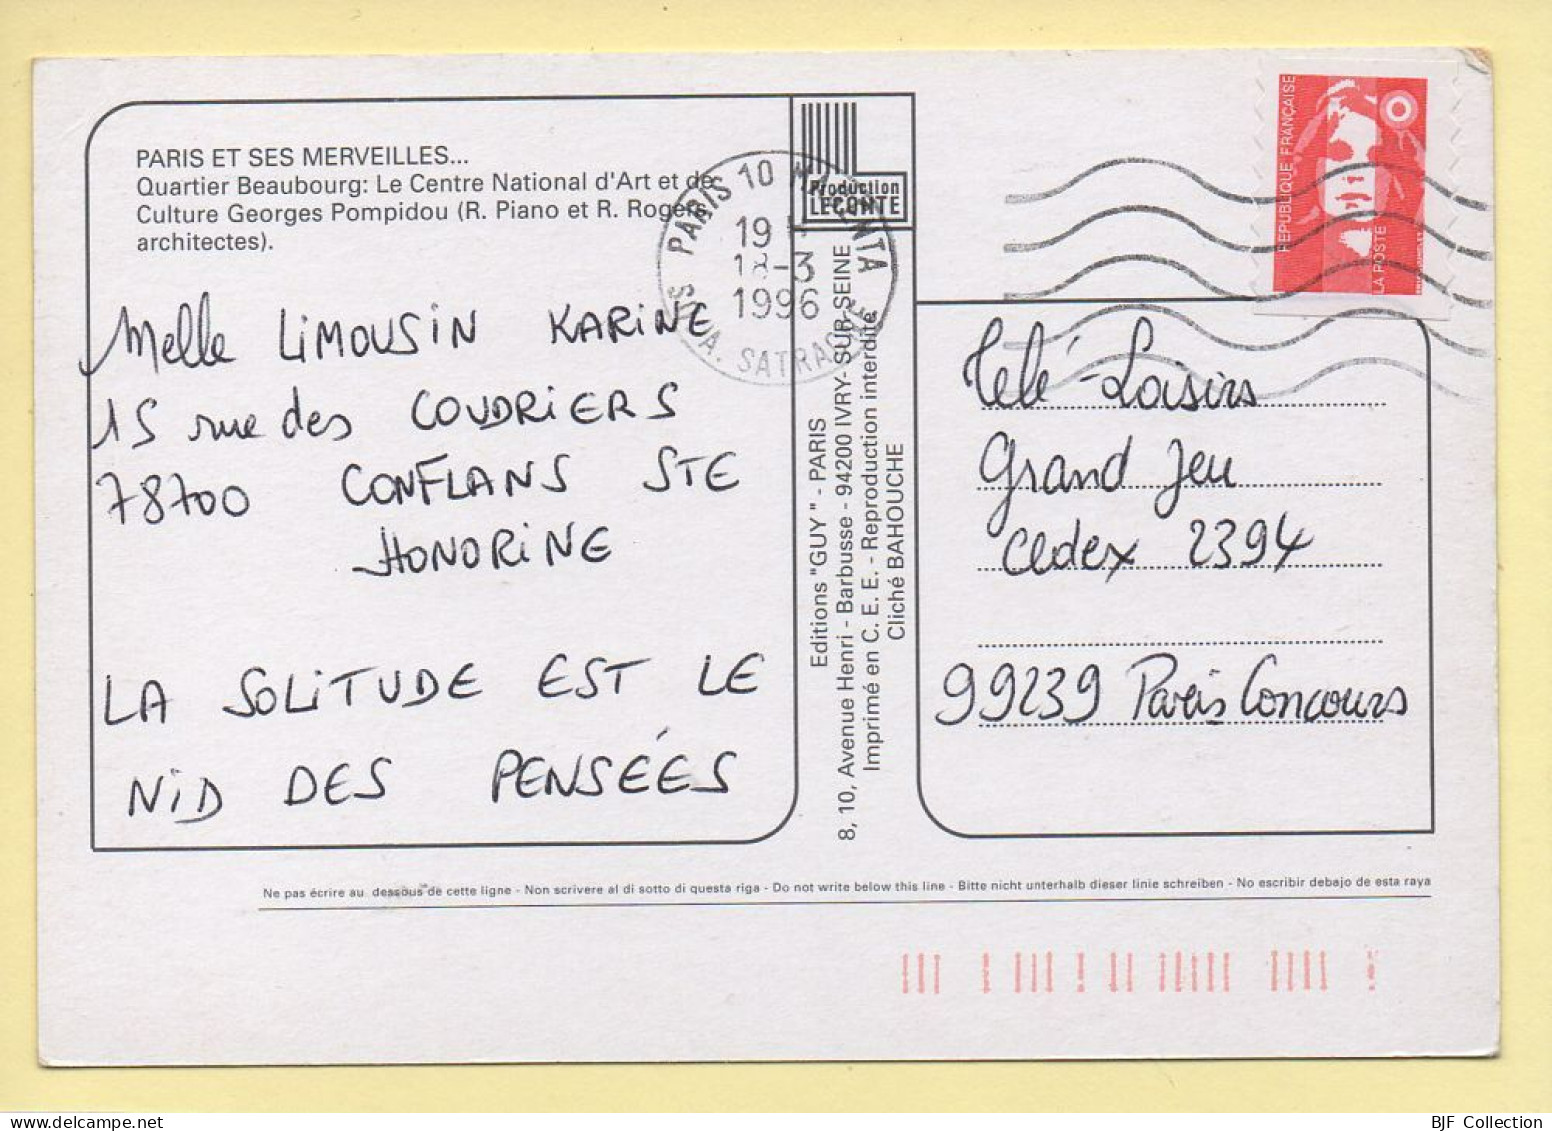 PARIS ET SES MERVEILLES...
Quartier Beaubourg: Le Centre National d'Art et de
Culture Georges Pompidou (R. Piano et R. Rogers
architectes).
Production
LECONTE
PARIS 10 MAGENTA
19
18-3
1996
REPUBLIQUE FRANÇAISE
LA POSTE
Melle LIMOUSIN KARINE
15 rue des COUDRIERS
78700 CONFLANS STE
HONORINE
LA SOLITUDE EST LE
NID DES PENSÉES
Editions "GUY" - PARIS
8, 10, Avenue Henri - Barbusse - 94200 IVRY- SUR-SEINE
Imprimé en C. E. E. - Reproduction interdite
Cliché BAHOUCHE
Télé-Loisirs
Grand Jeu
Cedex 2394
99239 Paris Concours
Ne pas écrire au dessous de cette ligne - Non scrivere al di sotto di questa riga - Do not write below this line - Bitte nicht unterhalb dieser linie schreiben - No escribir debajo de esta raya
BJF Collection